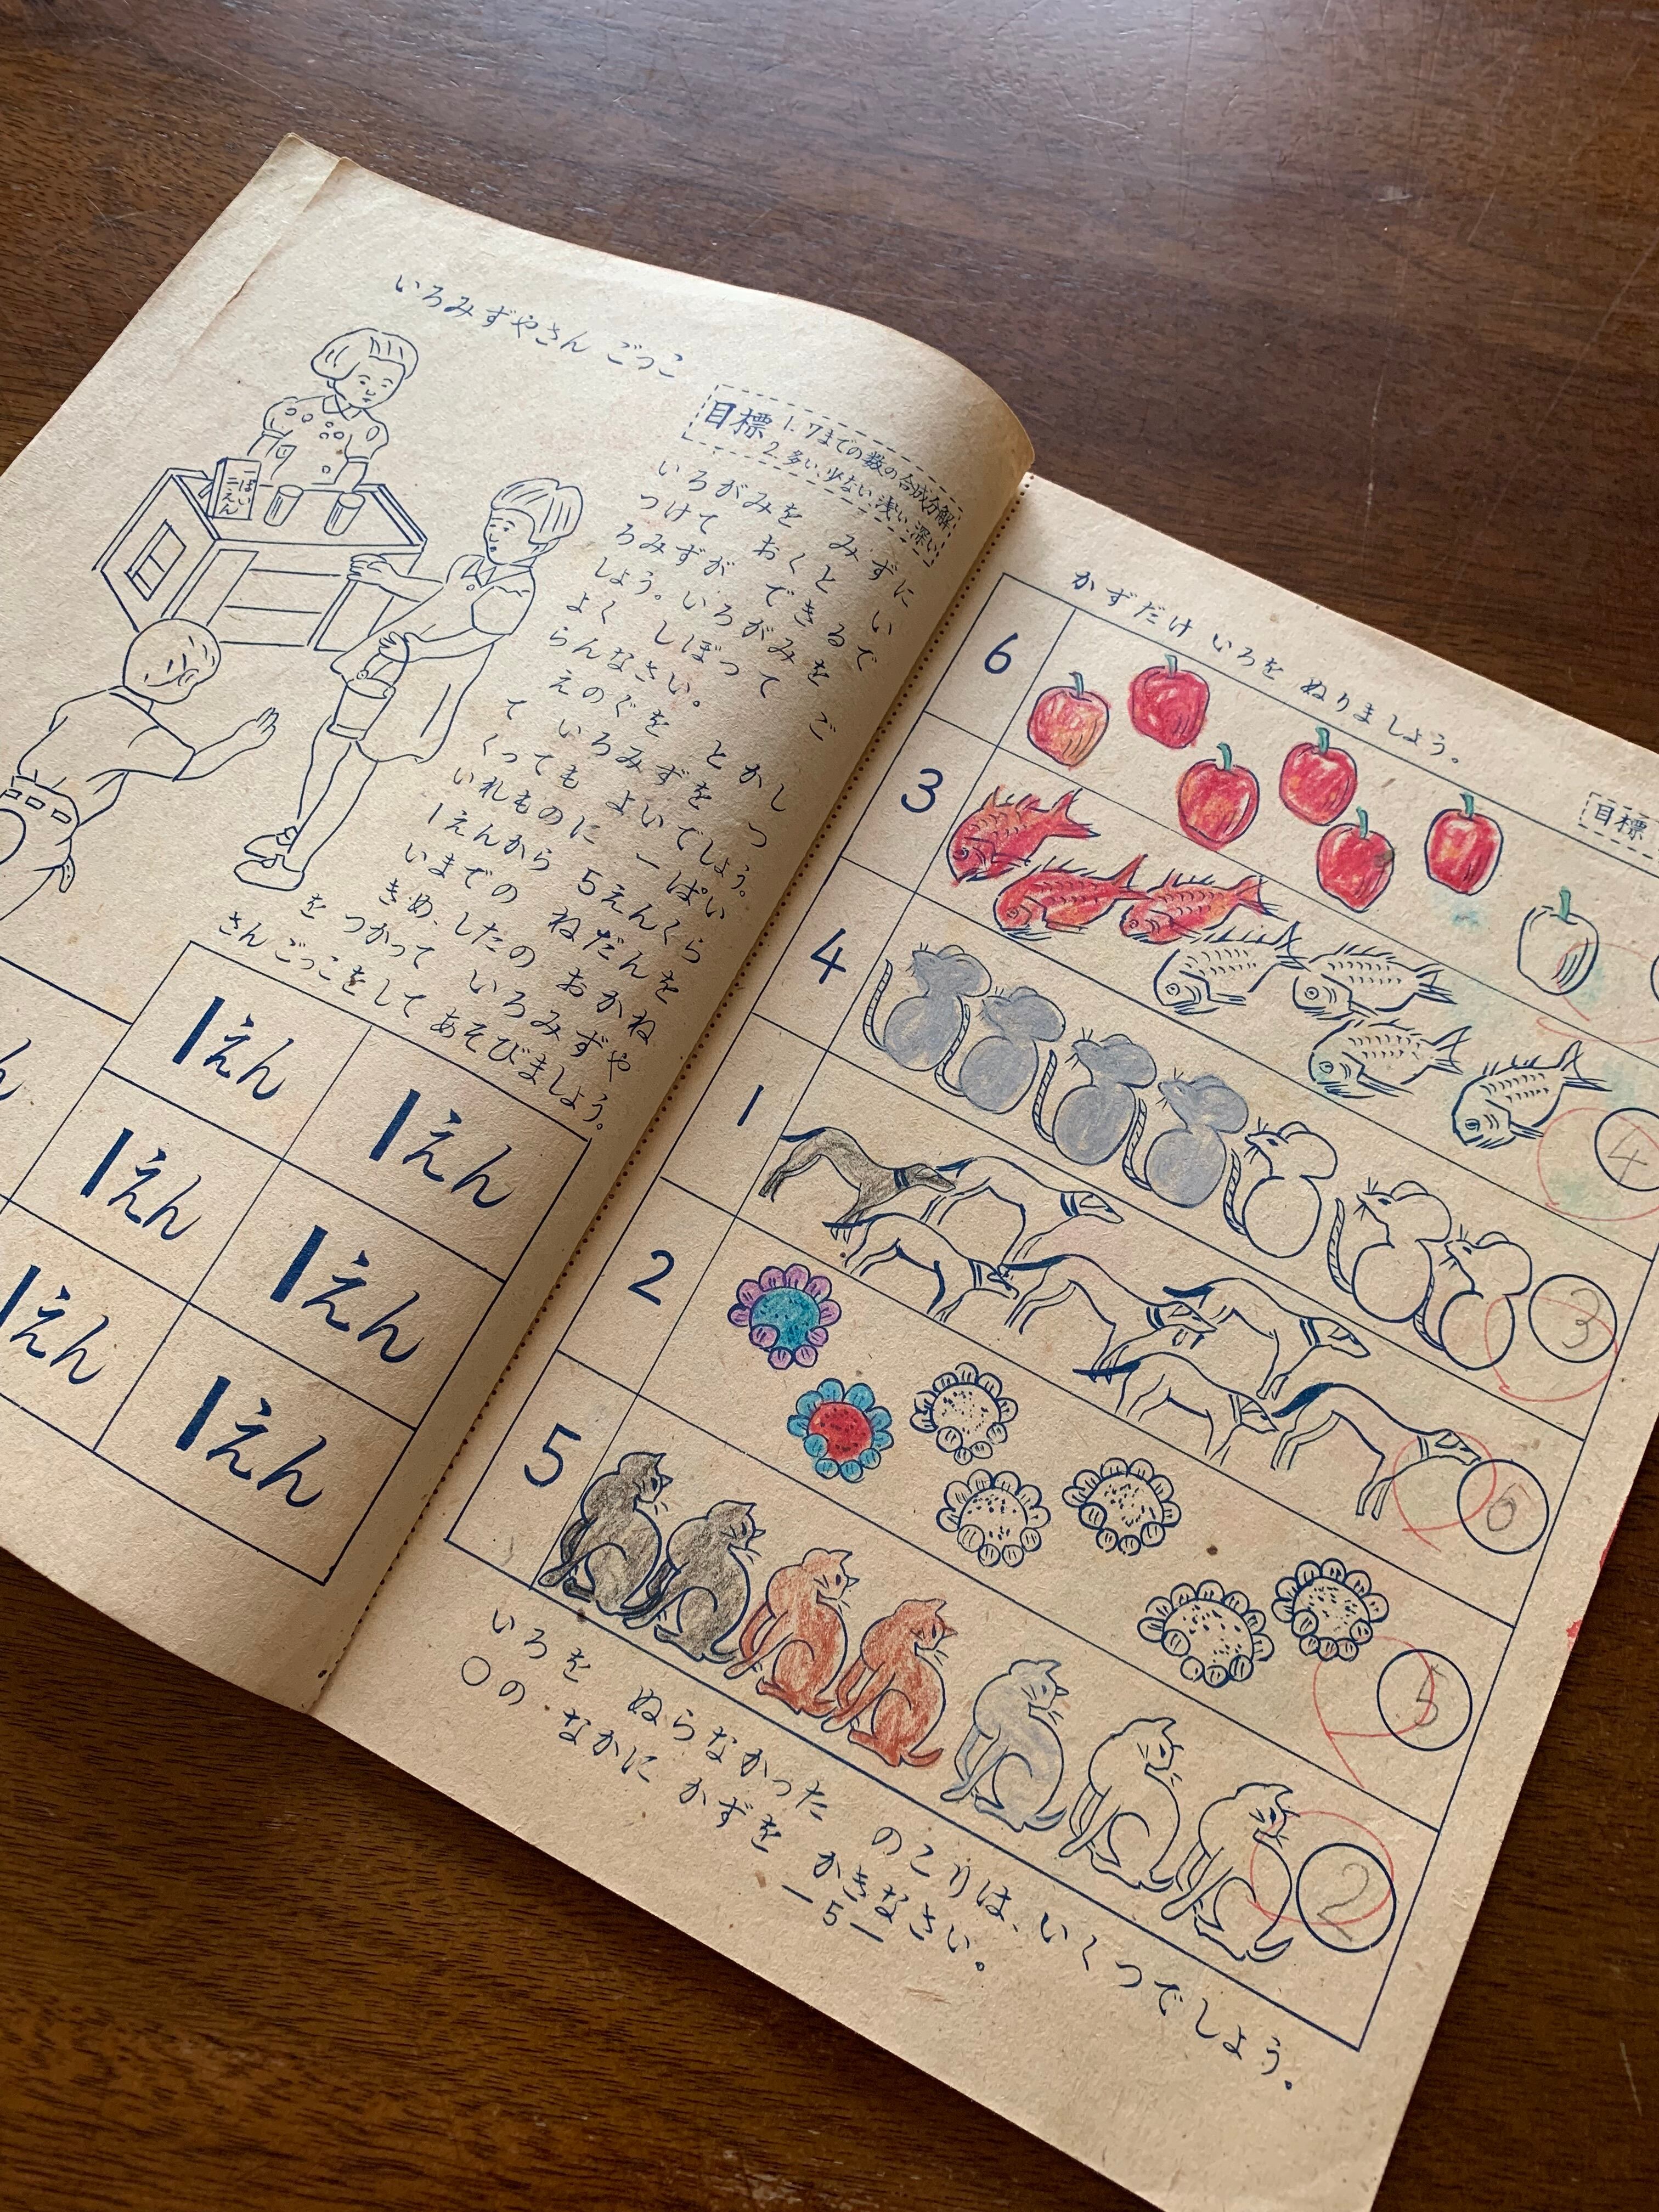 いろみずやさん ごっこ
目標 1. 7までの数の合成分解
2. 多い 少ない 浅い 深い
一ぱい
二えん
いろがみを みずに
つけて おくと い
ろみずが できるで
しょう。いろがみを
よく しぼって ご
らんなさい。
えのぐを とかし
て いろみずを つ
くっても よいでしょう。
いれものに 一ぱい
1えんから 5えんくら
いまでの ねだんを
きめ、したの おかね
を つかって いろみずや
さん ごっこをして あそびましょう。
1えん 1えん
1えん 1えん
1えん 1えん
かずだけ いろを ぬりましょう。
目標
6
3 4
4 3
1 6
2 5
5 2
いろを ぬらなかった のこりは、いくつでしょう。
○の なかに かずを かきなさい。
—5—